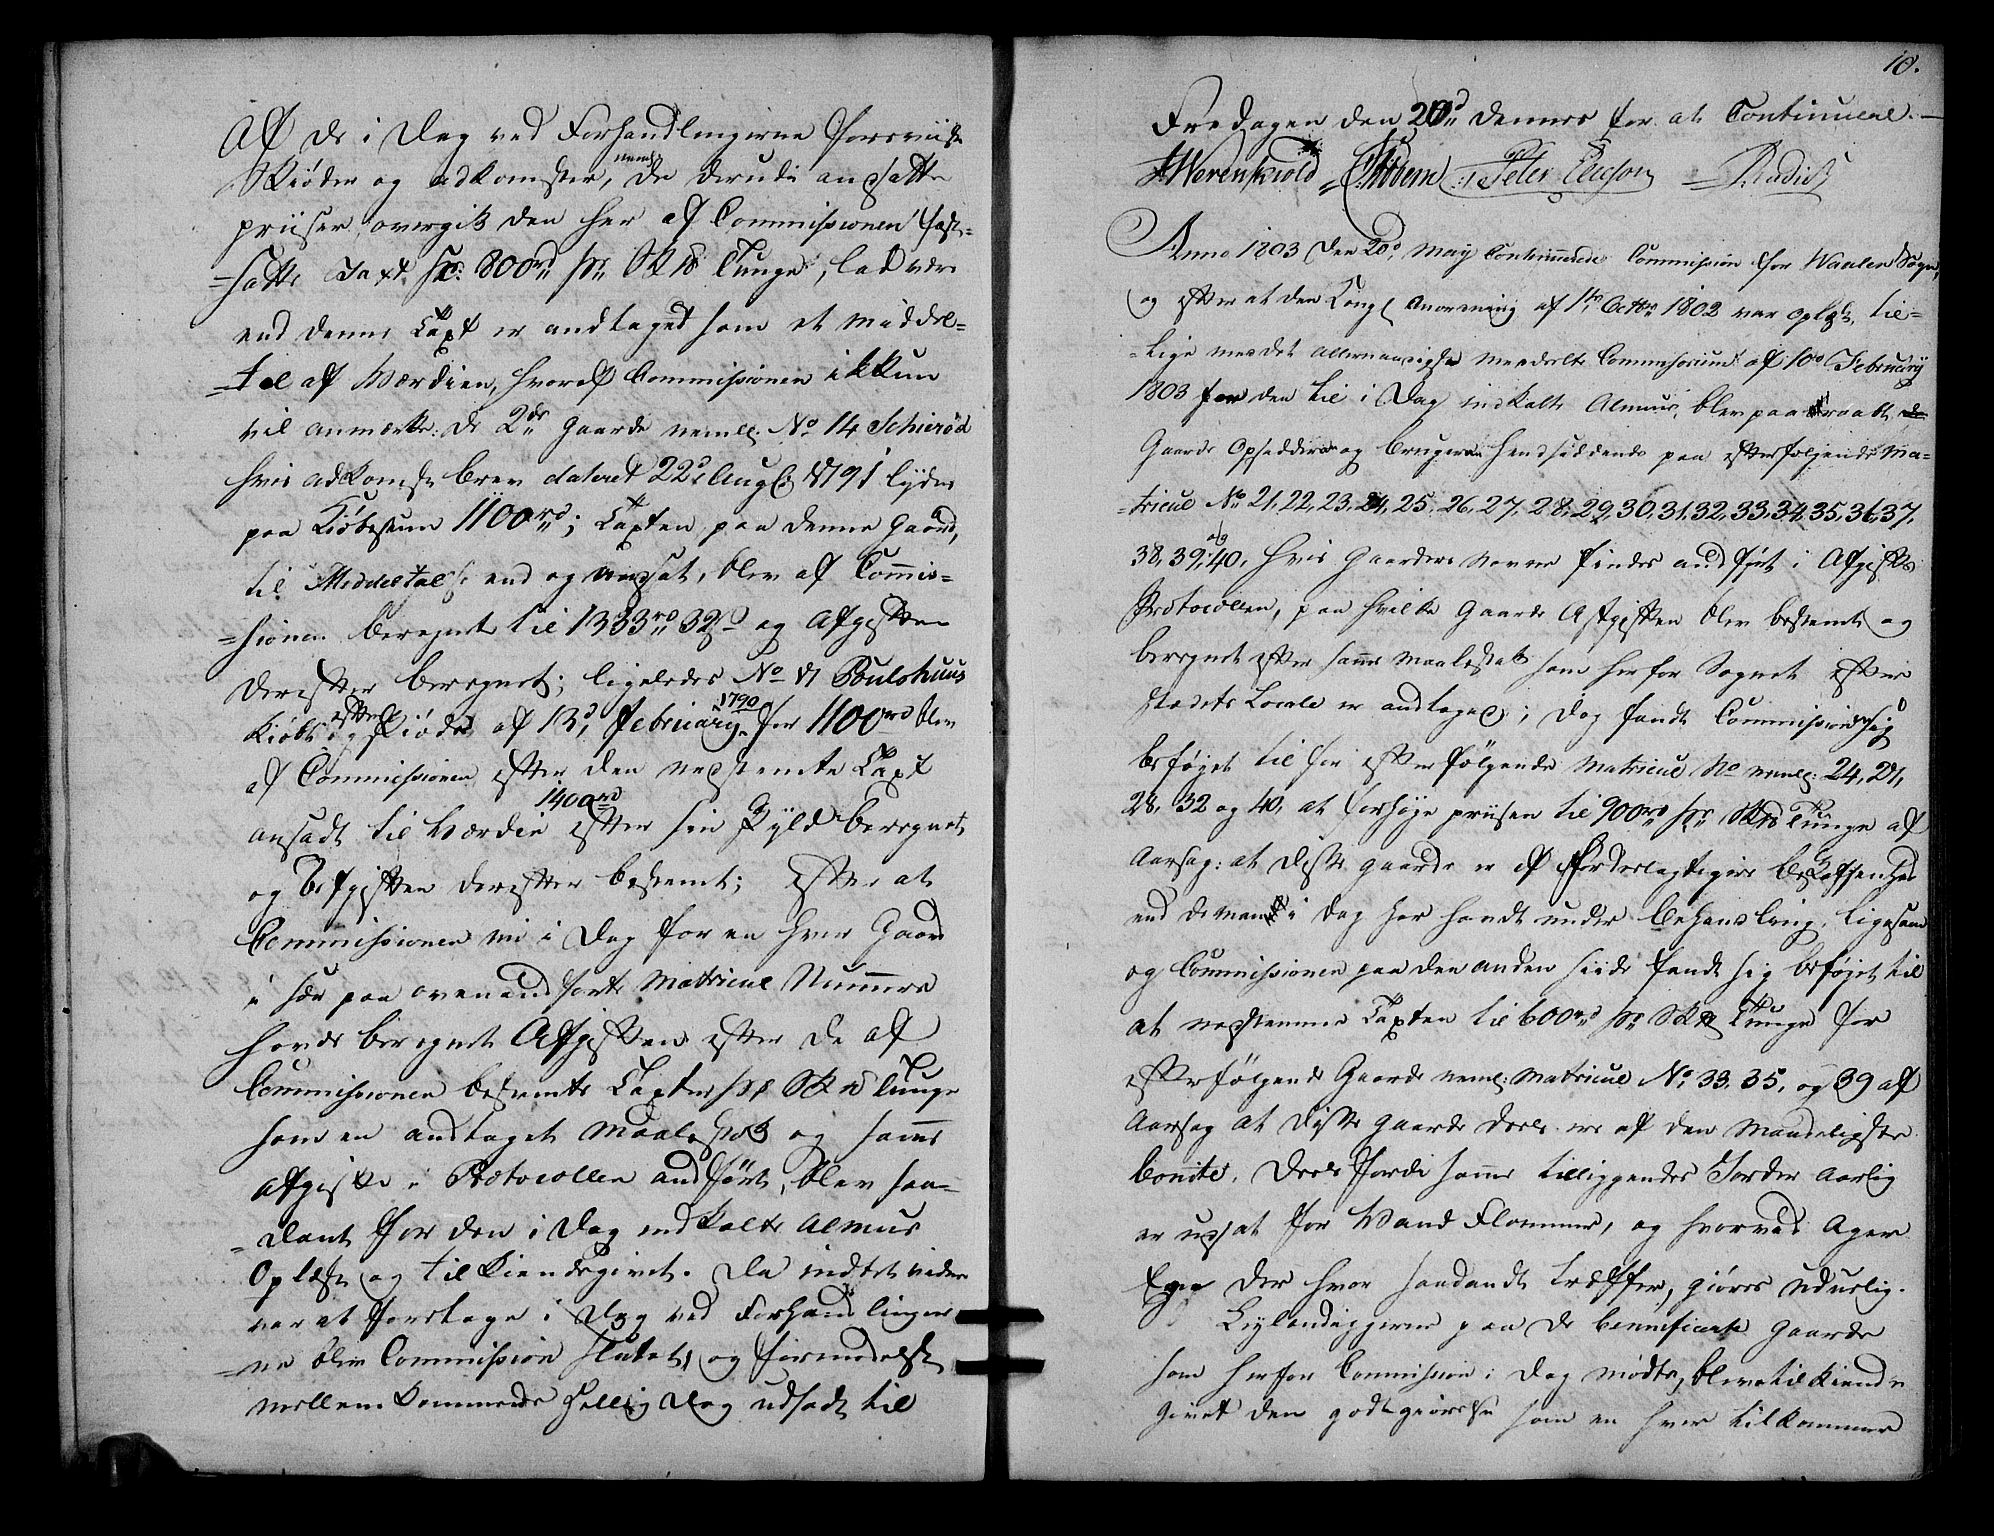 Af de i Dag ved Forhandlingerne foreviiste
Skiøder og adkomster, neml: de derudi ansatte
priiser, overgik den her af Commissionen fast-
=satte Taxt pr: 800 rd pr Skd Tunge, lad være
end denne Taxt er andtaget som et Middel-
=tal af Værdien, hvorpaa Commissionen ikkun
vil anmærke: de 2de Gaarde nemlig No 14 Schierød
hvis adkomst brev dateret 22d Aug 1791 lyder
paa Kiøbesum 1100 rd; Taxten paa denne Gaard,
til Middeltal end og ansat, blev af Commis-
=sionen beregnet til 1333 rd 32 s og Afgiften
derefter beregnet; ligeledes No 17 Poulshuus
Kiøbt efter Skiøde af 13d February 1790 for 1100 rd blev
af Commissionen efter den nedstemte Taxt
ansadt til Værdie 1400 rd efter sin Skyld beregnet
og Afgiften derefter bestemt; Efter at
Commissionen nu i Dag for en hver Gaard
i sær paa ovenandførte Matricul Nummere
havde beregnet Afgiften efter de af
Commissionen bestemte Taxter pr Skd Tunge
som en andtaget Maalestok og samme
afgift i Protocollen andført, blev saa-
=dant for den i Dag indkalte Almue
Oplæst og tilkiendegivet. Da indtet videre
var at foretage i Dag ved Forhandlinger
ne blev Commission sluttet, og formedelst
mellem kommende Hellig Dag udsadt til
10.
Fredagen den 20d dennes for at Continuere.
Werenskiold Peter Ericson
Anno 1803 den 20d May Continuerede Commission for Waaler Sogn,
og efter at den Kongl Anordning af 1te Octbr 1802 var Oplæst, til-
=lige med det allernaadigste meddeelte Commissorium af 10d February
1803 for den til i Dag indkalte Almue, blev paaraabt de
Gaarde Opsiddere og brugere henhørende paa efterfølgende Ma-
=tricul No 21, 22, 23, 24, 25, 26, 27, 28, 29, 30, 31, 32, 33, 34, 35, 36, 37,
38, 39, og 40, hvis Gaarders Navne findes andført i Afgifts
Protocollen, paa hvilke Gaarde Afgiften blev bestemt og
beregnet efter samme Maalestok som her for Sognet efter
stedets Locale er andtaget; Dog fandt Commissionen sig
beføyet til for efterfølgende Matricul No nemlig: 24, 27,
28, 32 og 40, at forhøye priisen til 900 rd pr Skd Tunge af
Aarsag: at disse Gaarde er af fordeelagtigere beskaffenhed
end de man i Dag har havdt under behandling, ligesom
og Commissionen paa den anden siide fandt sig beføyet til
at nedstemme Taxten til 600 rd pr Skd Tunge for
efterfølgende Gaarde neml: Matricul No 33, 35, og 39 af
Aarsag at disse Gaarde deels ere af den Maadeligste
bonite, deels fordi samme tilliggendes Jorder Aarlig
er udsat for Vand Flommer, og hvorved Ager
Eng der hvor saadandt træffer, giøres uduelig.
Leylændingerne paa de beneficerte Gaarde
som her for Commission i Dag mødte, blev tilkiende
givet den godtgiørelse som en hver tilkommer